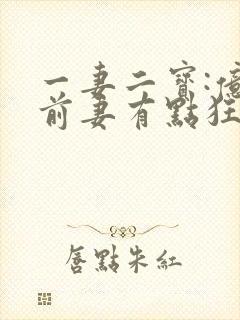 一妻二寶:億
前妻有點狂
唇點朱紅